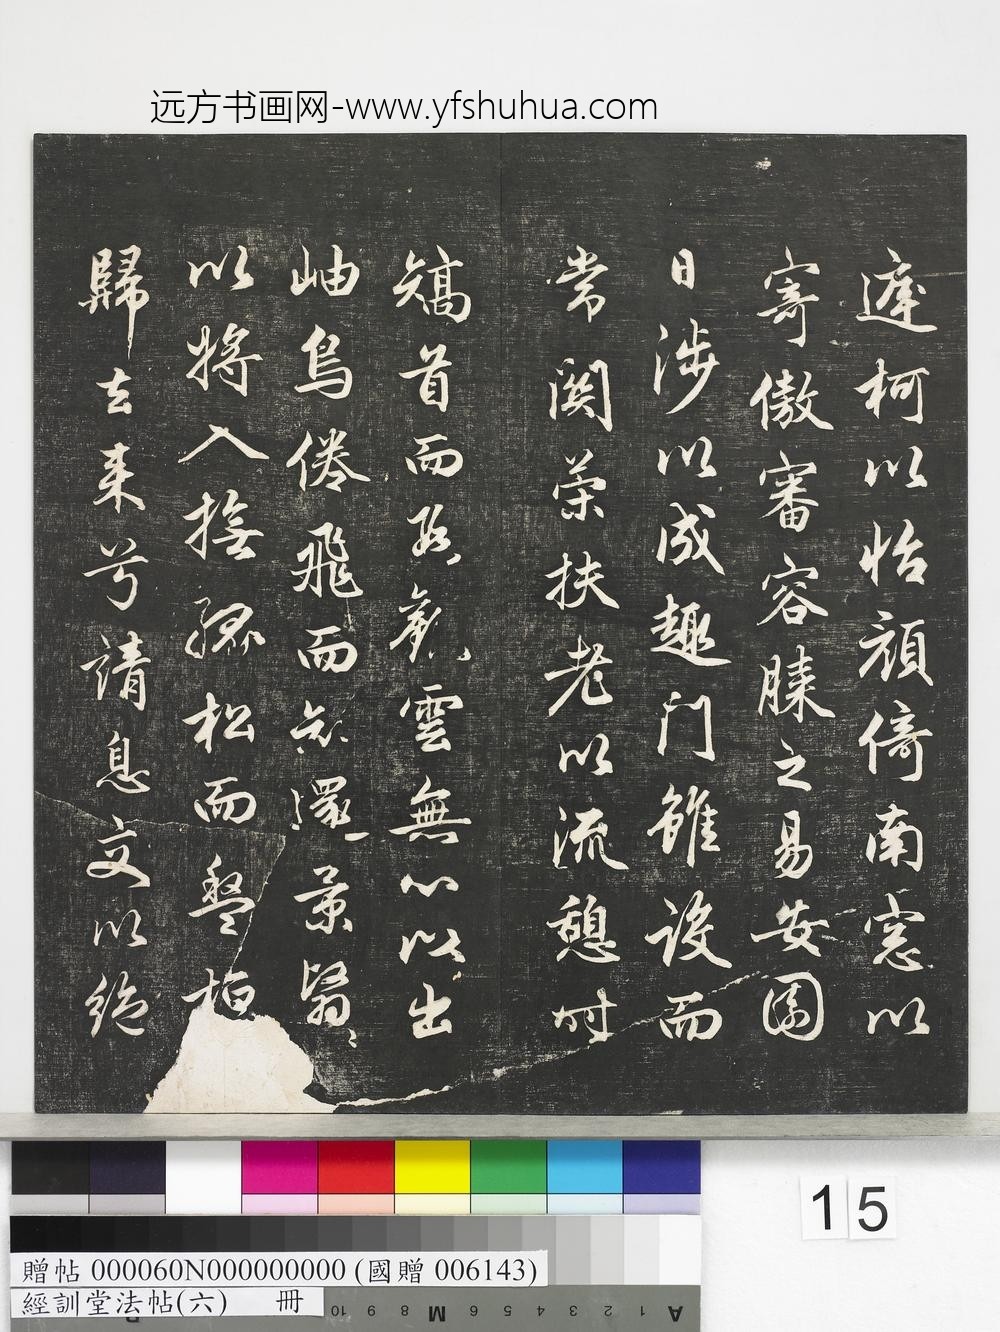 远方书画网-www.yfshuhua.com
庭柯以怡顔倚南窓以
寄傲審容膝之易安園
日涉以成趣門雖設而
常関策扶老以流憩時
矯首而遐觀雲無心以出
岫鳥倦飛而知還景翳〻
以將入撫孤松而盤桓
歸去来兮請息交以絶
15
贈帖 000060N000000000 (國贈 006143)
經訓堂法帖(六) 冊
10 9 8 M 6 5 4 3 2 1 A